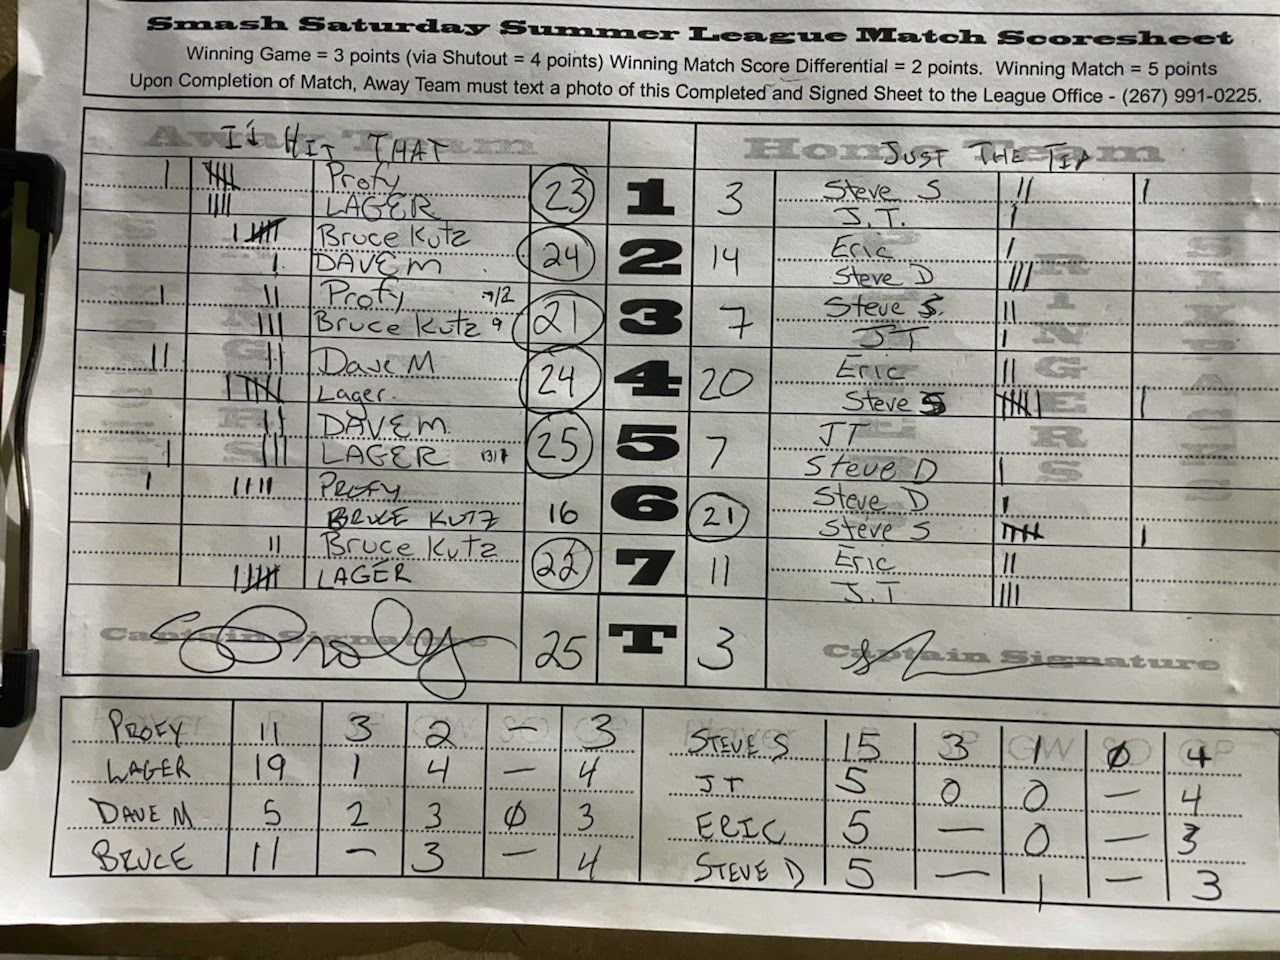 Smash Saturday Summer League Match Scoresheet
Winning Game = 3 points (via Shutout = 4 points) Winning Match Score Differential = 2 points. Winning Match = 5 points
Upon Completion of Match, Away Team must text a photo of this Completed and Signed Sheet to the League Office - (267) 991-0225.
Away Team Home Team
I'd HIT THAT JUST THE TIP
Profy 23 1 3 Steve S
LAGER J.T.
Bruce Kutz 24 2 14 Eric
DAVE M Steve D
Profy 7/2 21 3 7 Steve S.
Bruce Kutz 9 JT
Dave M 24 4 20 Eric
Lager Steve S
DAVE M. 25 5 7 JT
LAGER 13/7 Steve D
PROFY 16 6 21 Steve D
BRUCE KUTZ Steve S
Bruce Kutz 22 7 11 Eric
LAGER J.T
Captain Signature 25 T 3 Captain Signature
PROFY 11 3 2 — 3 STEVE S 15 3 1 0 4
LAGER 19 1 4 — 4 JT 5 0 0 — 4
DAVE M 5 2 3 0 3 ERIC 5 — 0 — 3
BRUCE 11 — 3 — 4 STEVE D 5 — 1 — 3